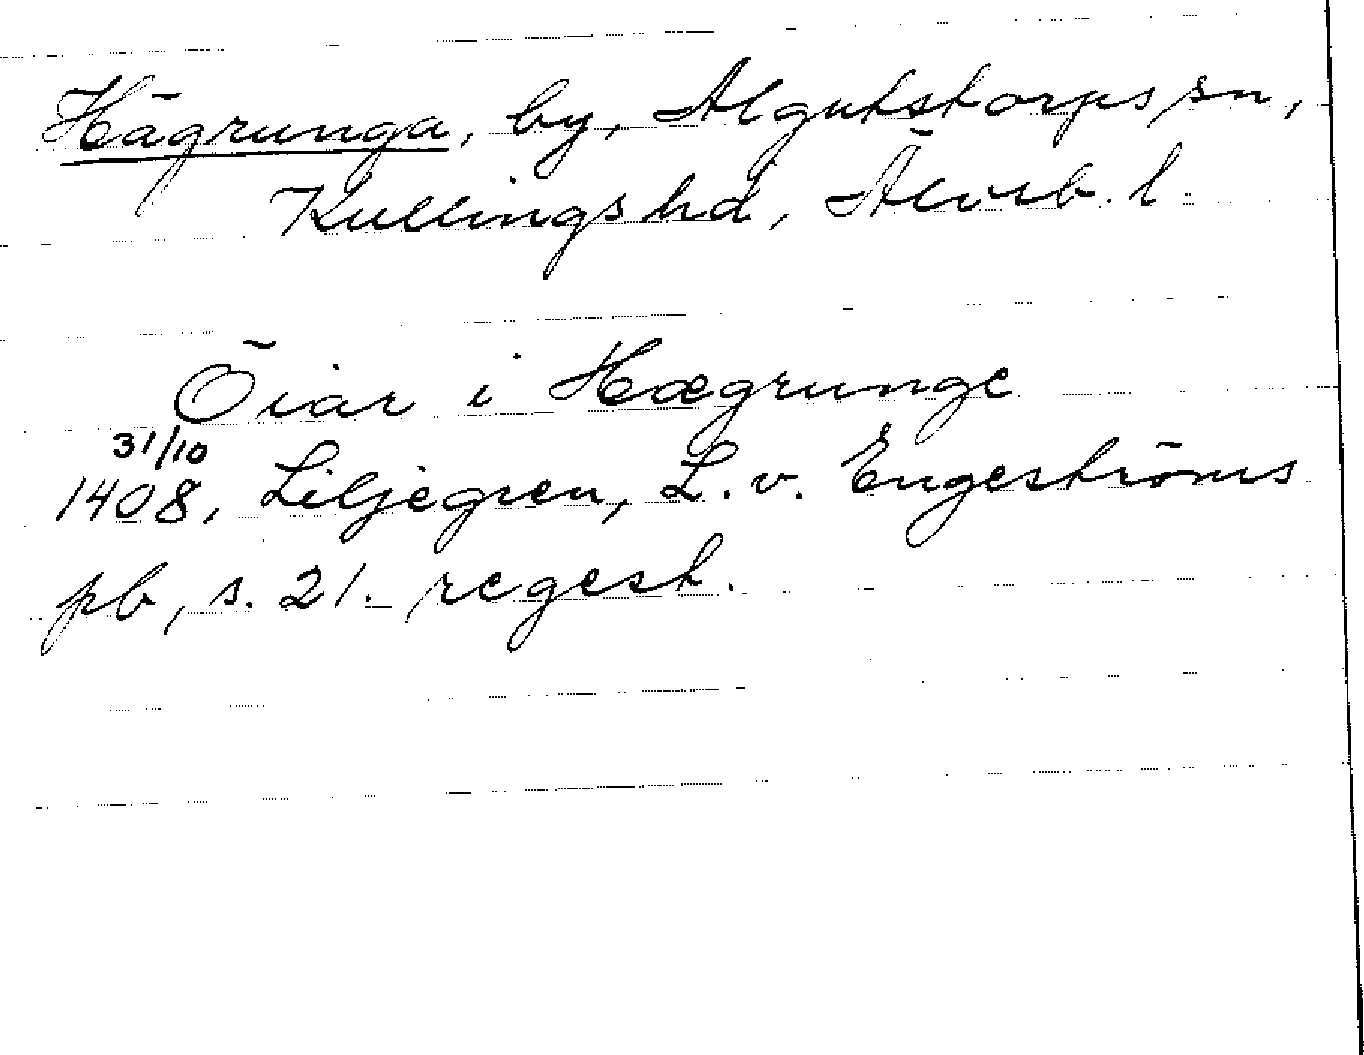 Hägrunga, by, Algutstorps sn,
Kullings hd, Älvsb. l.
Öiar i Hægrunge
31/10
1408, Liljegren, L. v. Engeströms
pb, s. 21. regest.